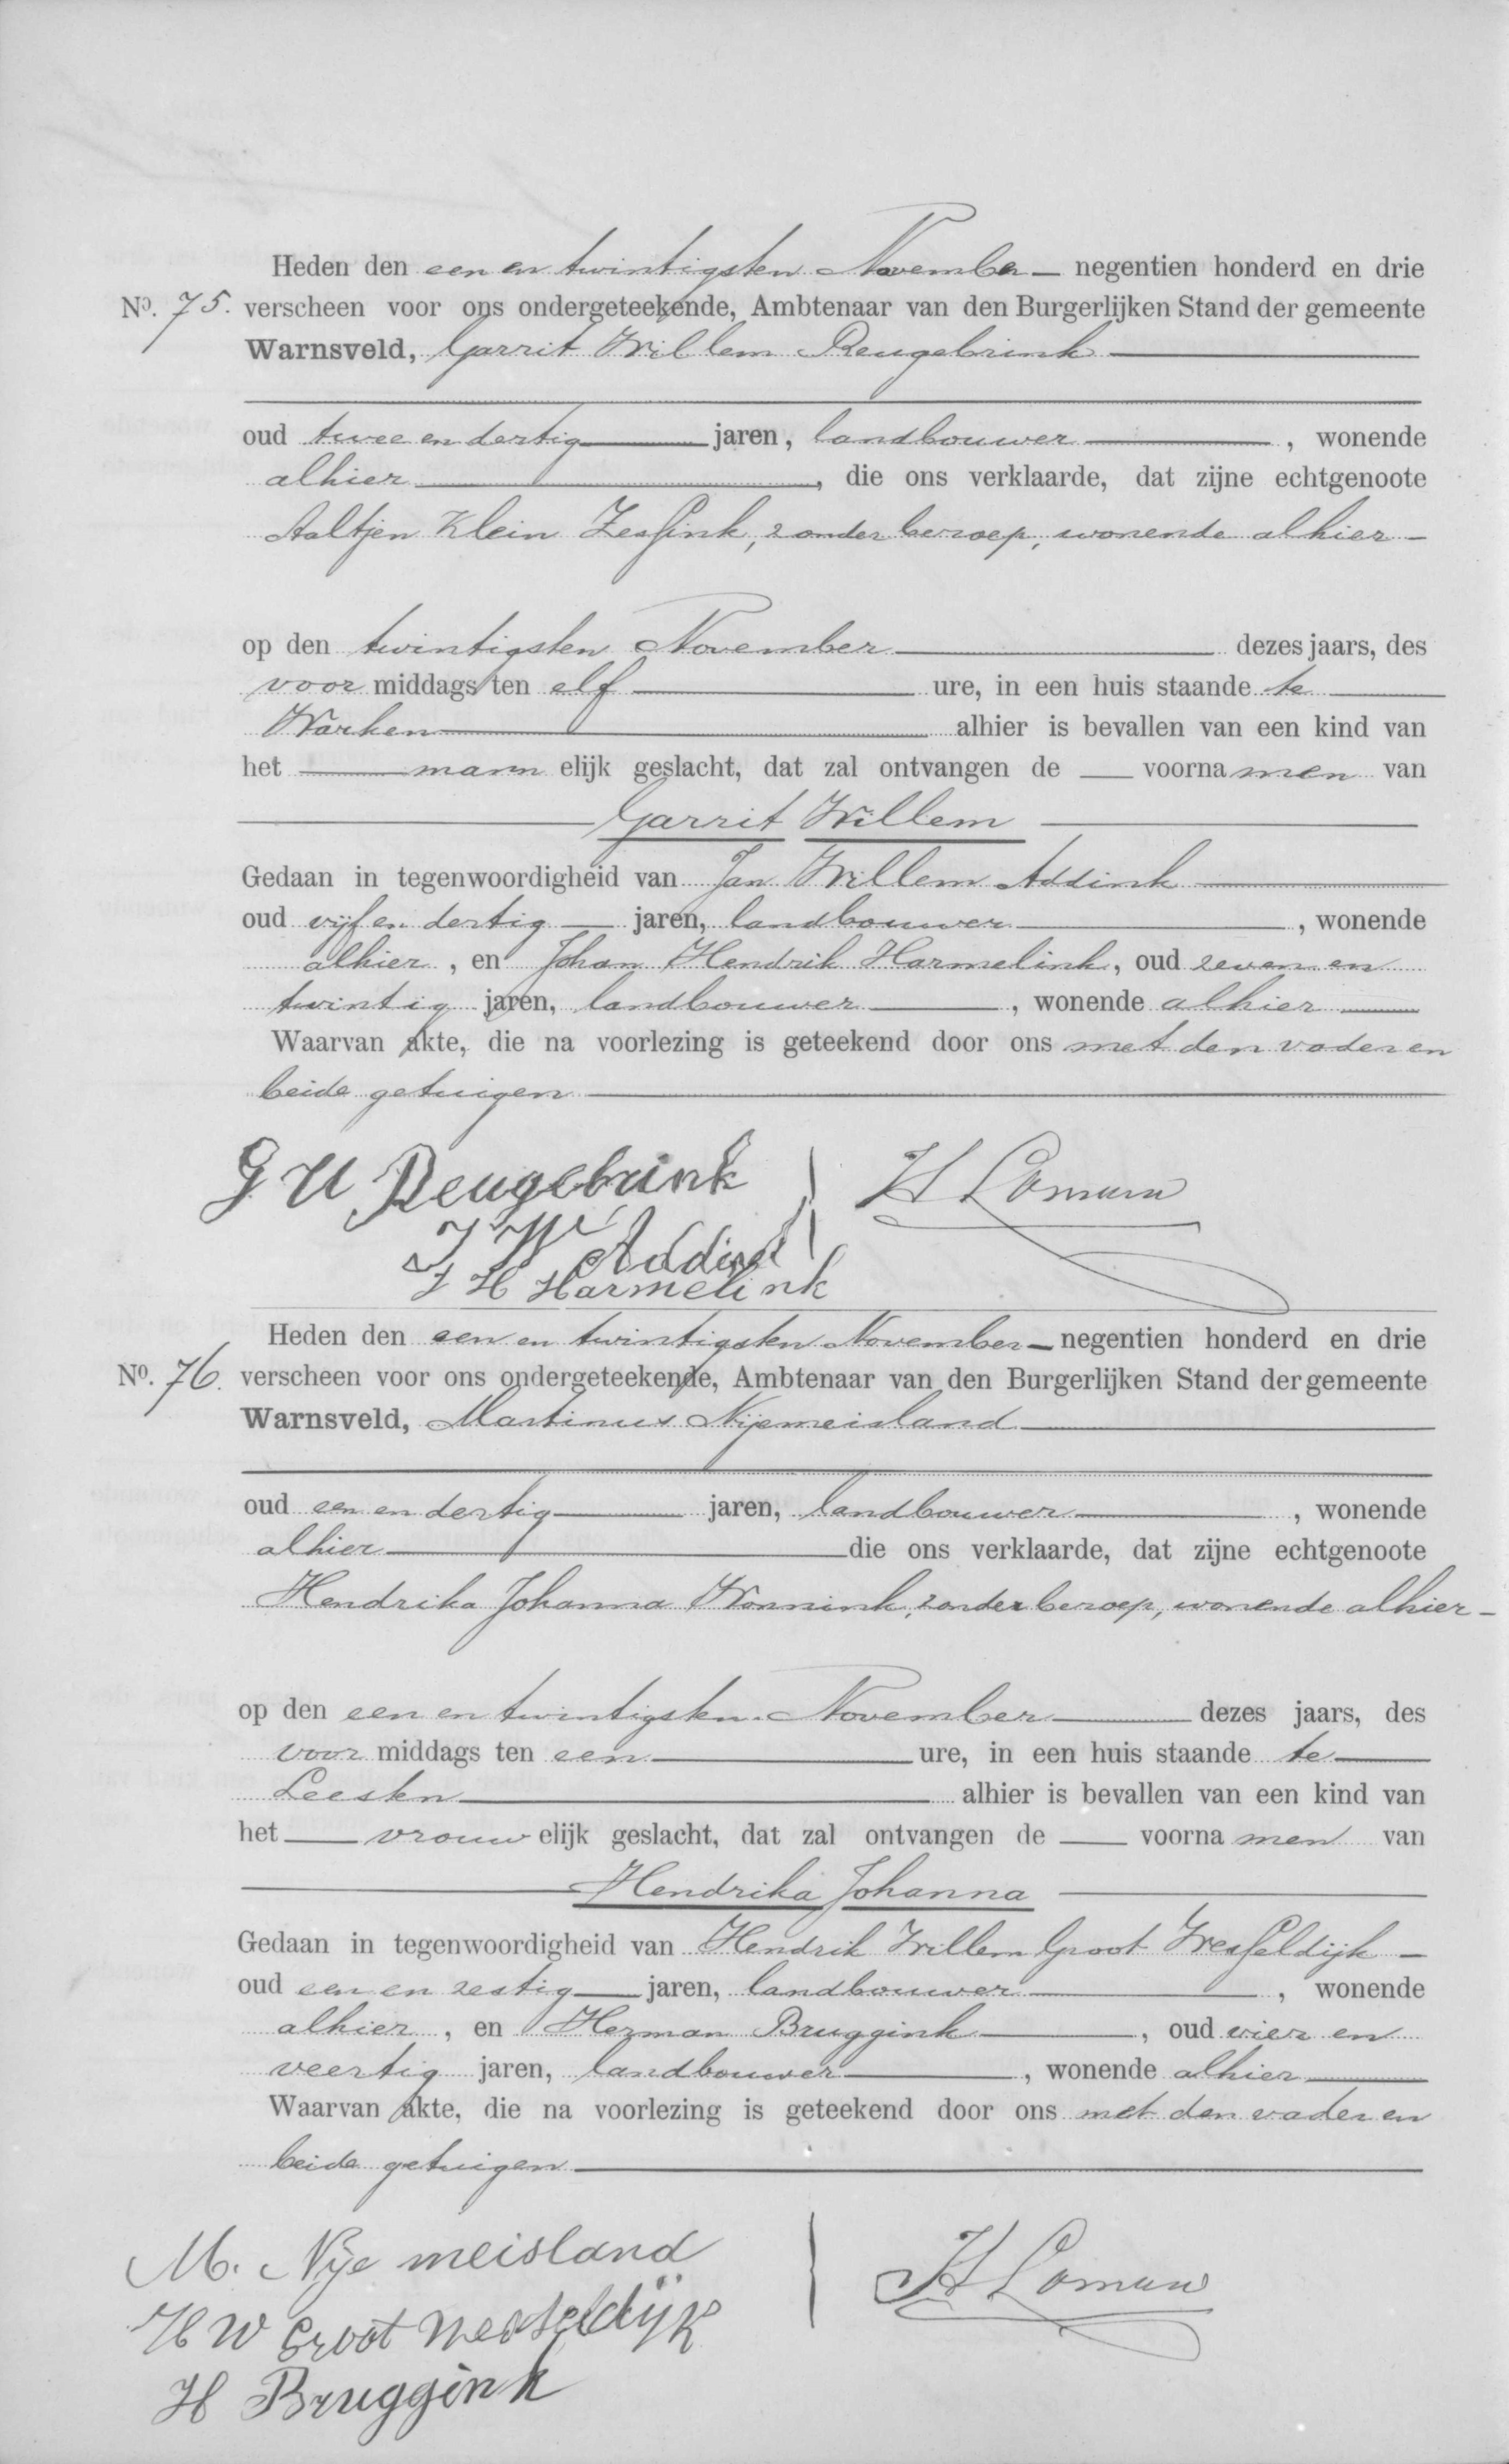 Heden den een en twintigsten November negentien honderd en drie
No. 75. verscheen voor ons ondergeteekende, Ambtenaar van den Burgerlijken Stand der gemeente
Warnsveld, Garrit Willem Reugebrink
oud twee en dertig jaren, landbouwer, wonende
alhier, die ons verklaarde, dat zijne echtgenoote
Aaltjen Klein Zessink, zonder beroep, wonende alhier
op den twintigsten November dezes jaars, des
voor middags ten elf ure, in een huis staande te
Warken alhier is bevallen van een kind van
het mannelijk geslacht, dat zal ontvangen de voornamen van
Garrit Willem
Gedaan in tegenwoordigheid van Jan Willem Addink
oud vijf en dertig jaren, landbouwer, wonende
alhier, en Johan Hendrik Harmelink, oud zeven en
twintig jaren, landbouwer, wonende alhier
Waarvan akte, die na voorlezing is geteekend door ons met den vader en
beide getuigen
G W Reugebrink H Lomans
J W Addink
J H Harmelink
Heden den een en twintigsten November negentien honderd en drie
No. 76. verscheen voor ons ondergeteekende, Ambtenaar van den Burgerlijken Stand der gemeente
Warnsveld, Martinus Nijemeisland
oud een en dertig jaren, landbouwer, wonende
alhier die ons verklaarde, dat zijne echtgenoote
Hendrika Johanna Wonnink, zonder beroep, wonende alhier
op den een en twintigsten November dezes jaars, des
voor middags ten een ure, in een huis staande te
Leesten alhier is bevallen van een kind van
het vrouwelijk geslacht, dat zal ontvangen de voornamen van
Hendrika Johanna
Gedaan in tegenwoordigheid van Hendrik Willem Groot Wesseldijk
oud een en zestig jaren, landbouwer, wonende
alhier, en Herman Bruggink, oud vier en
veertig jaren, landbouwer, wonende alhier
Waarvan akte, die na voorlezing is geteekend door ons met den vader en
beide getuigen
M. Nije meisland H Lomans
H W Groot Wesseldijk
H Bruggink